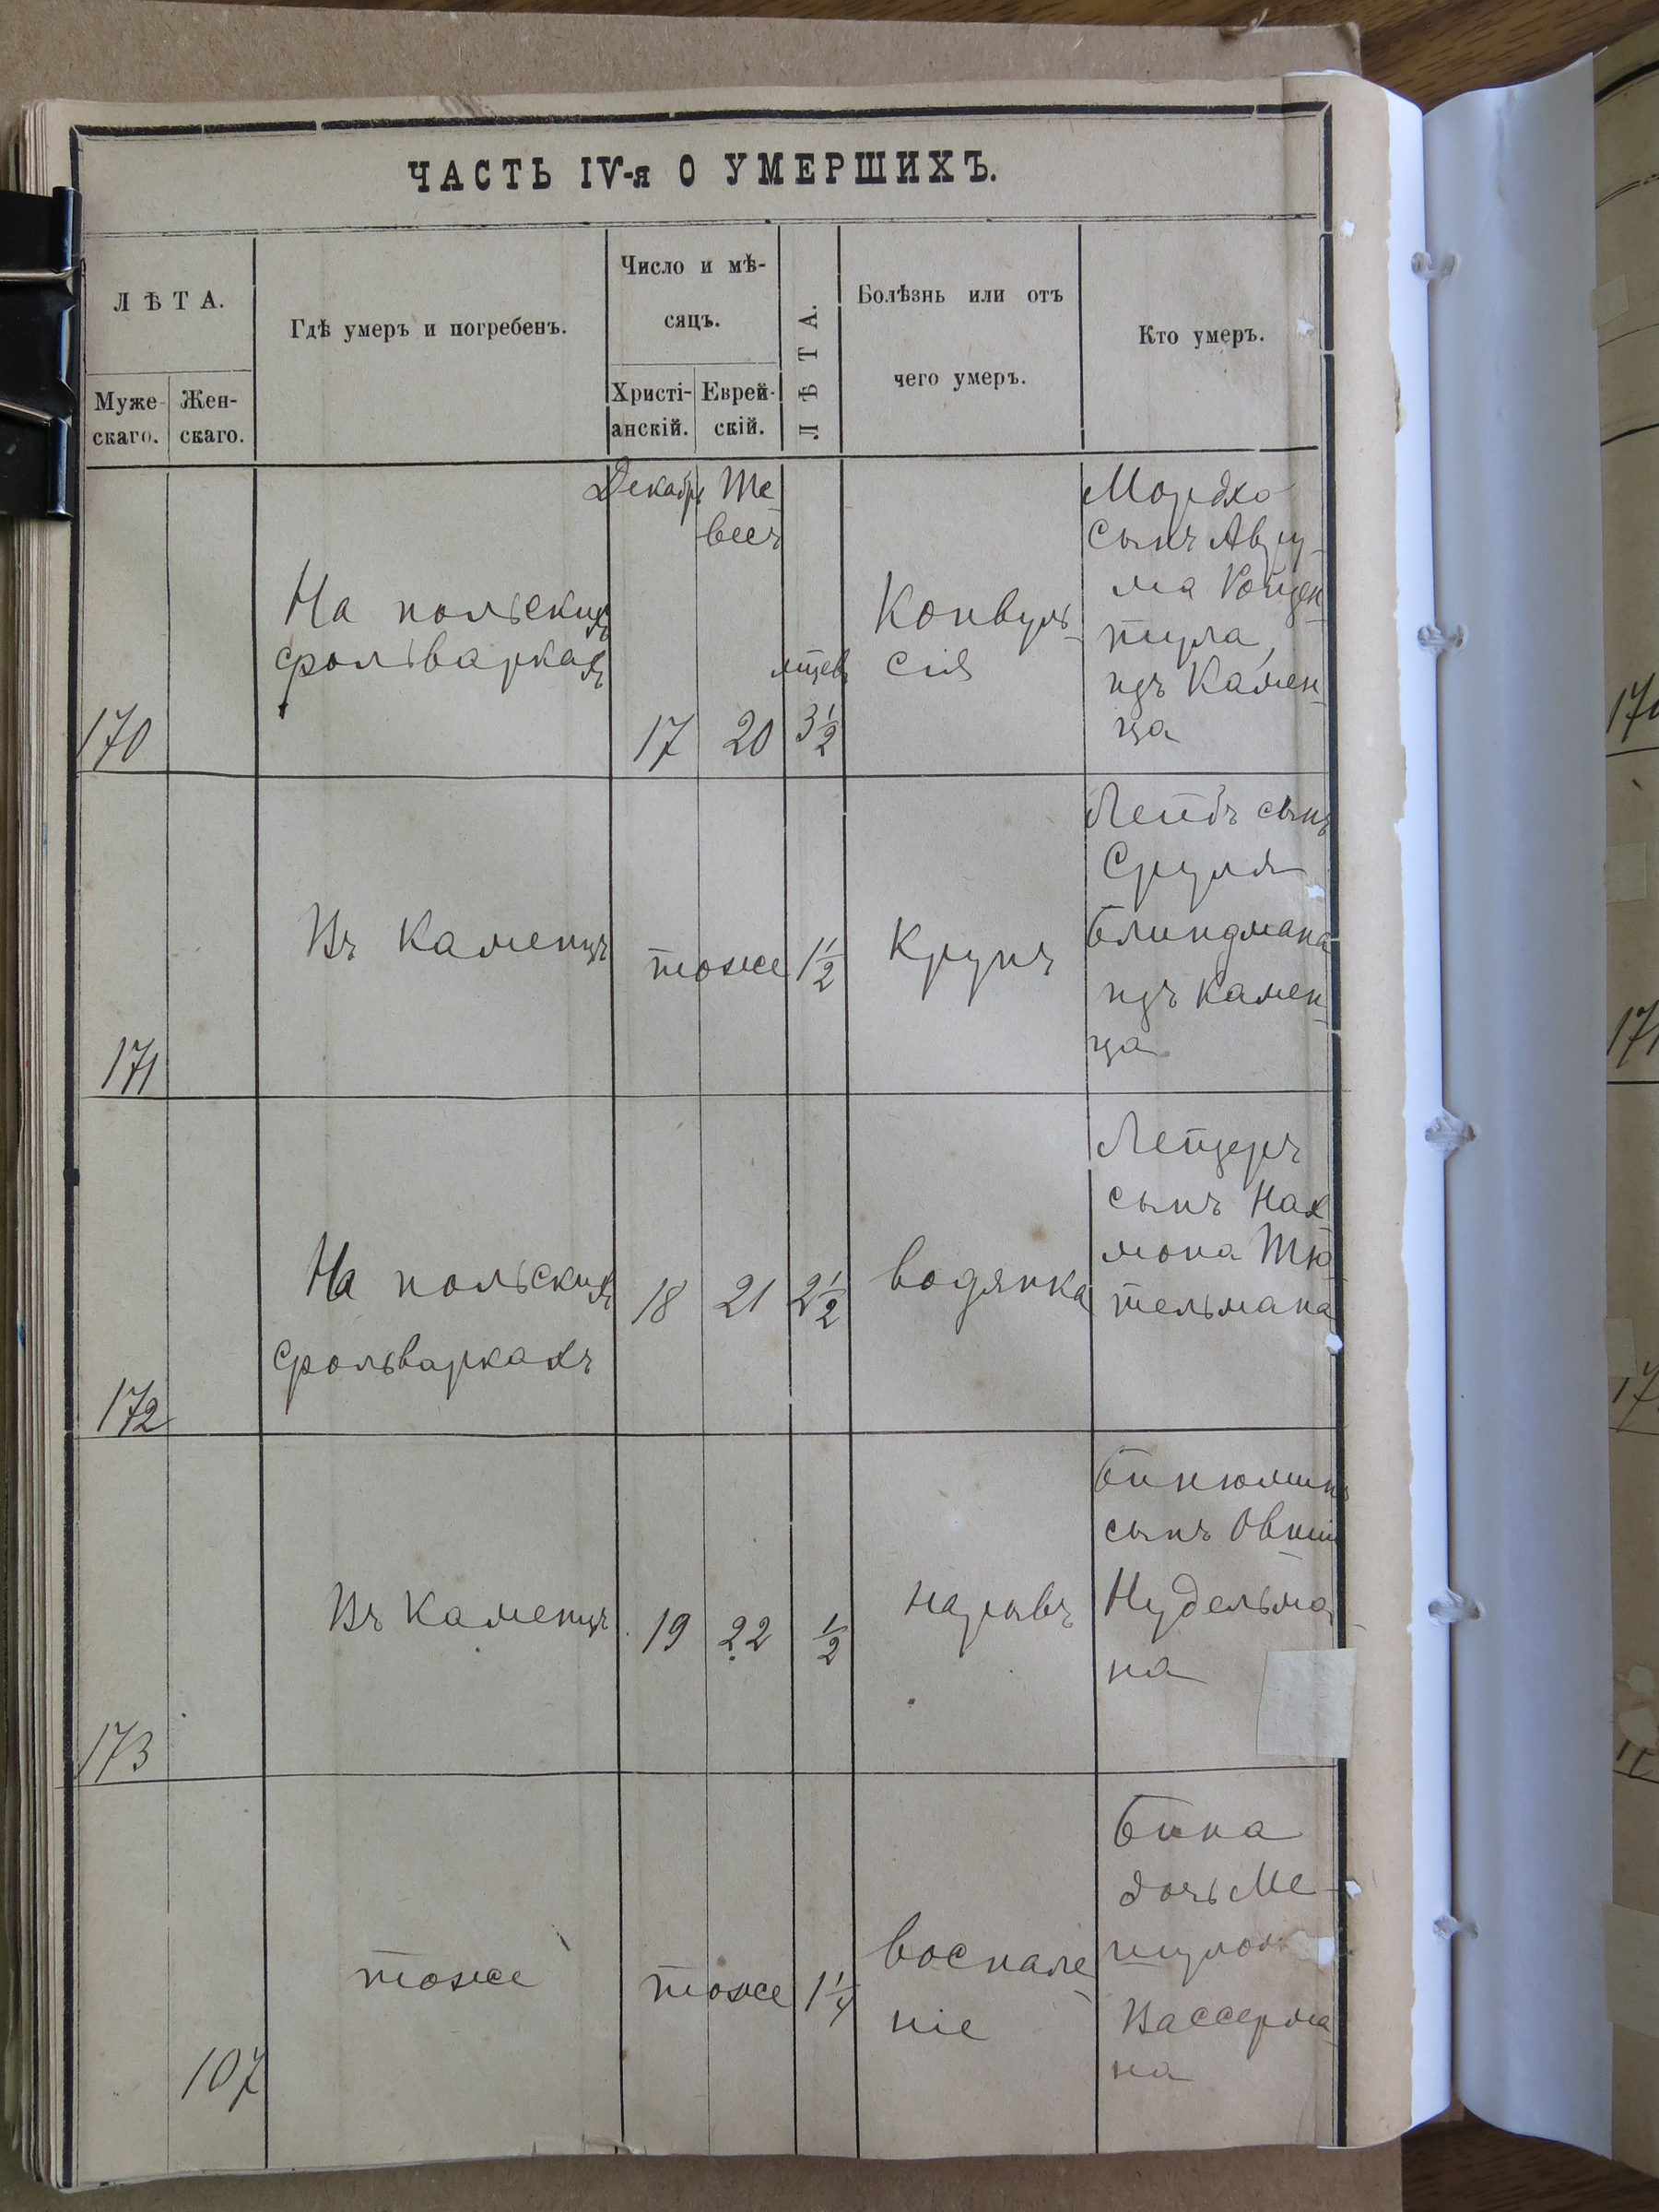 ЧАСТЬ IV-я О УМЕРШИХЪ.
ЛѢТА.
Муже-
скаго.
Жен-
скаго.
Гдѣ умеръ и погребенъ.
Число и мѣ-
сяцъ.
Христі-
анскій.
Еврей-
скій.
ЛѢТА.
Болѣзнь или отъ
чего умеръ.
Кто умеръ.
170
На польских
фольварках
Декабрь
17
Те
весъ
20
3 1/2
Конвуль
сія
Мордко
сынъ Авру-
ма Ройзен
изъ Камен-
ца
171
Въ Каменцѣ
тоже
1 1/2
Крупъ
Лейбъ сынъ
Сруля
Блиндмана
изъ Камен-
ца
172
На польских
фольваркахъ
18
21
2 1/2
водянка
Лейзеръ
сынъ Нах
мона Тю
тельмана
173
Въ Каменцѣ
19
22
1/2
нарывъ
Бинюминъ
сынъ Овшія
Нудельма
на
107
тоже
тоже
1 1/4
воспале
ніе
Бина
дочь Ме-
Вассерма
на
170
171
17